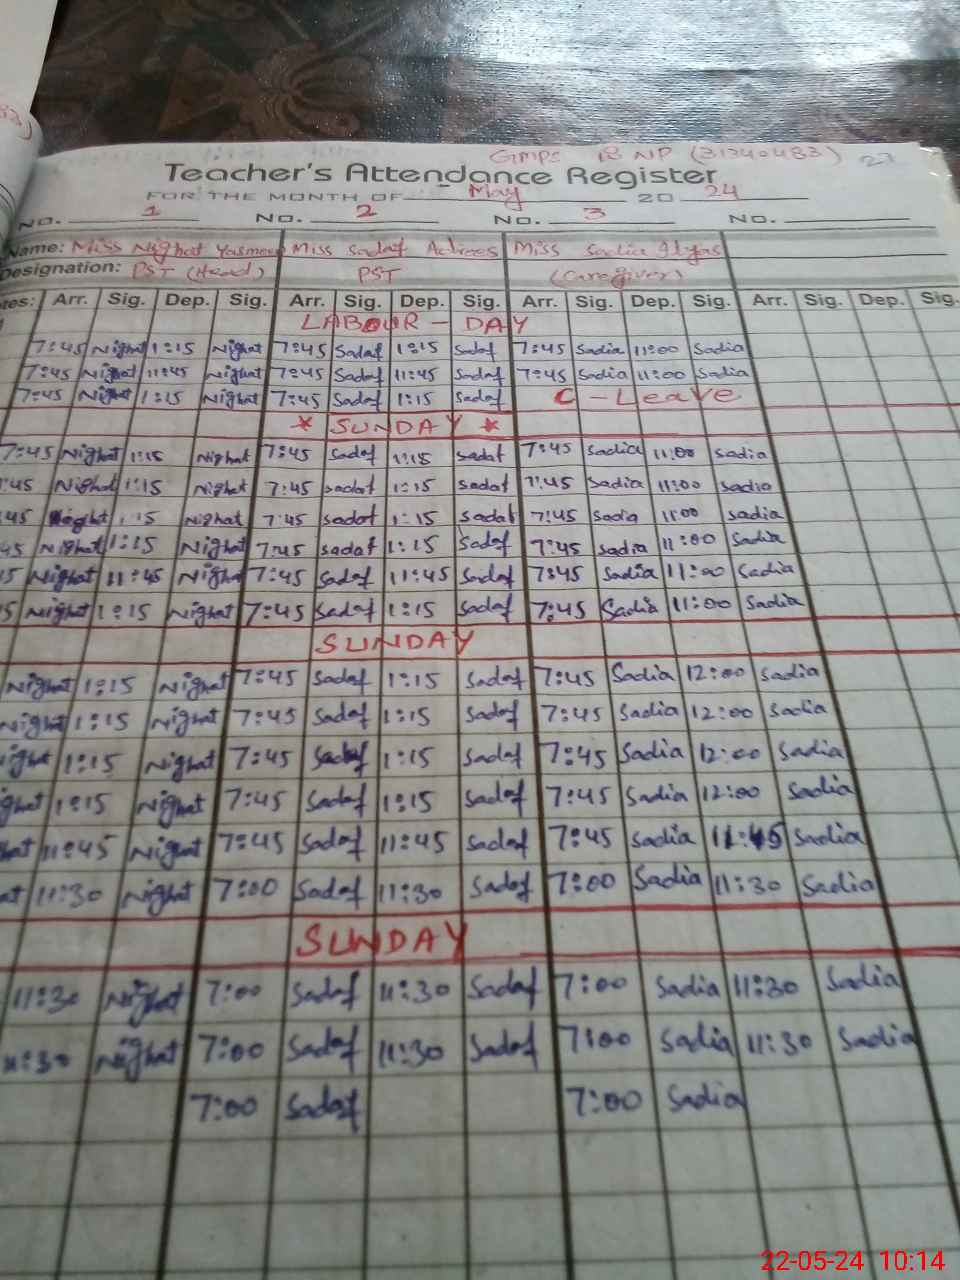 GMPS 18 NP (31340483) 27
Teacher's Attendance Register
FOR THE MONTH OF May 20 24
NO. 1 NO. 2 NO. 3 NO.
Name: Miss Nighat Yasmeen Miss Sadaf Miss Sadia Ilyas
Designation: PST (Head) PST (Caregiver)
Arr. Sig. Dep. Sig. Arr. Sig. Dep. Sig. Arr. Sig. Dep. Sig. Arr. Sig. Dep. Sig.
LABOUR - DAY
7:45 Nighat 1:15 Nighat 7:45 Sadaf 1:15 Sadaf 7:45 Sadia 11:00 Sadia
7:45 Nighat 11:45 Nighat 7:45 Sadaf 11:45 Sadaf 7:45 Sadia 11:00 Sadia
7:45 Nighat 1:15 Nighat 7:45 Sadaf 1:15 Sadaf C - Leave
* SUNDAY *
7:45 Nighat 1:15 Nighat 7:45 Sadaf 1:15 Sadaf 7:45 Sadia 11:00 Sadia
:45 Nighat 1:15 Nighat 7:45 Sadaf 1:15 Sadaf 7:45 Sadia 11:00 Sadia
45 Nighat 1:15 Nighat 7:45 Sadaf 1:15 Sadaf 7:45 Sadia 11:00 Sadia
45 Nighat 1:15 Nighat 7:45 Sadaf 1:15 Sadaf 7:45 Sadia 11:00 Sadia
5 Nighat 11:45 Nighat 7:45 Sadaf 11:45 Sadaf 7:45 Sadia 11:00 Sadia
5 Nighat 1:15 Nighat 7:45 Sadaf 1:15 Sadaf 7:45 Sadia 11:00 Sadia
SUNDAY
Nighat 1:15 Nighat 7:45 Sadaf 1:15 Sadaf 7:45 Sadia 12:00 Sadia
Nighat 1:15 Nighat 7:45 Sadaf 1:15 Sadaf 7:45 Sadia 12:00 Sadia
ighat 1:15 Nighat 7:45 Sadaf 1:15 Sadaf 7:45 Sadia 12:00 Sadia
ghat 1:15 Nighat 7:45 Sadaf 1:15 Sadaf 7:45 Sadia 12:00 Sadia
hat 11:45 Nighat 7:45 Sadaf 11:45 Sadaf 7:45 Sadia 11:45 Sadia
at 11:30 Nighat 7:00 Sadaf 11:30 Sadaf 7:00 Sadia 11:30 Sadia
SUNDAY
11:30 Nighat 7:00 Sadaf 11:30 Sadaf 7:00 Sadia 11:30 Sadia
11:30 Nighat 7:00 Sadaf 11:30 Sadaf 7:00 Sadia 11:30 Sadia
7:00 Sadaf 7:00 Sadia
22-05-24 10:14